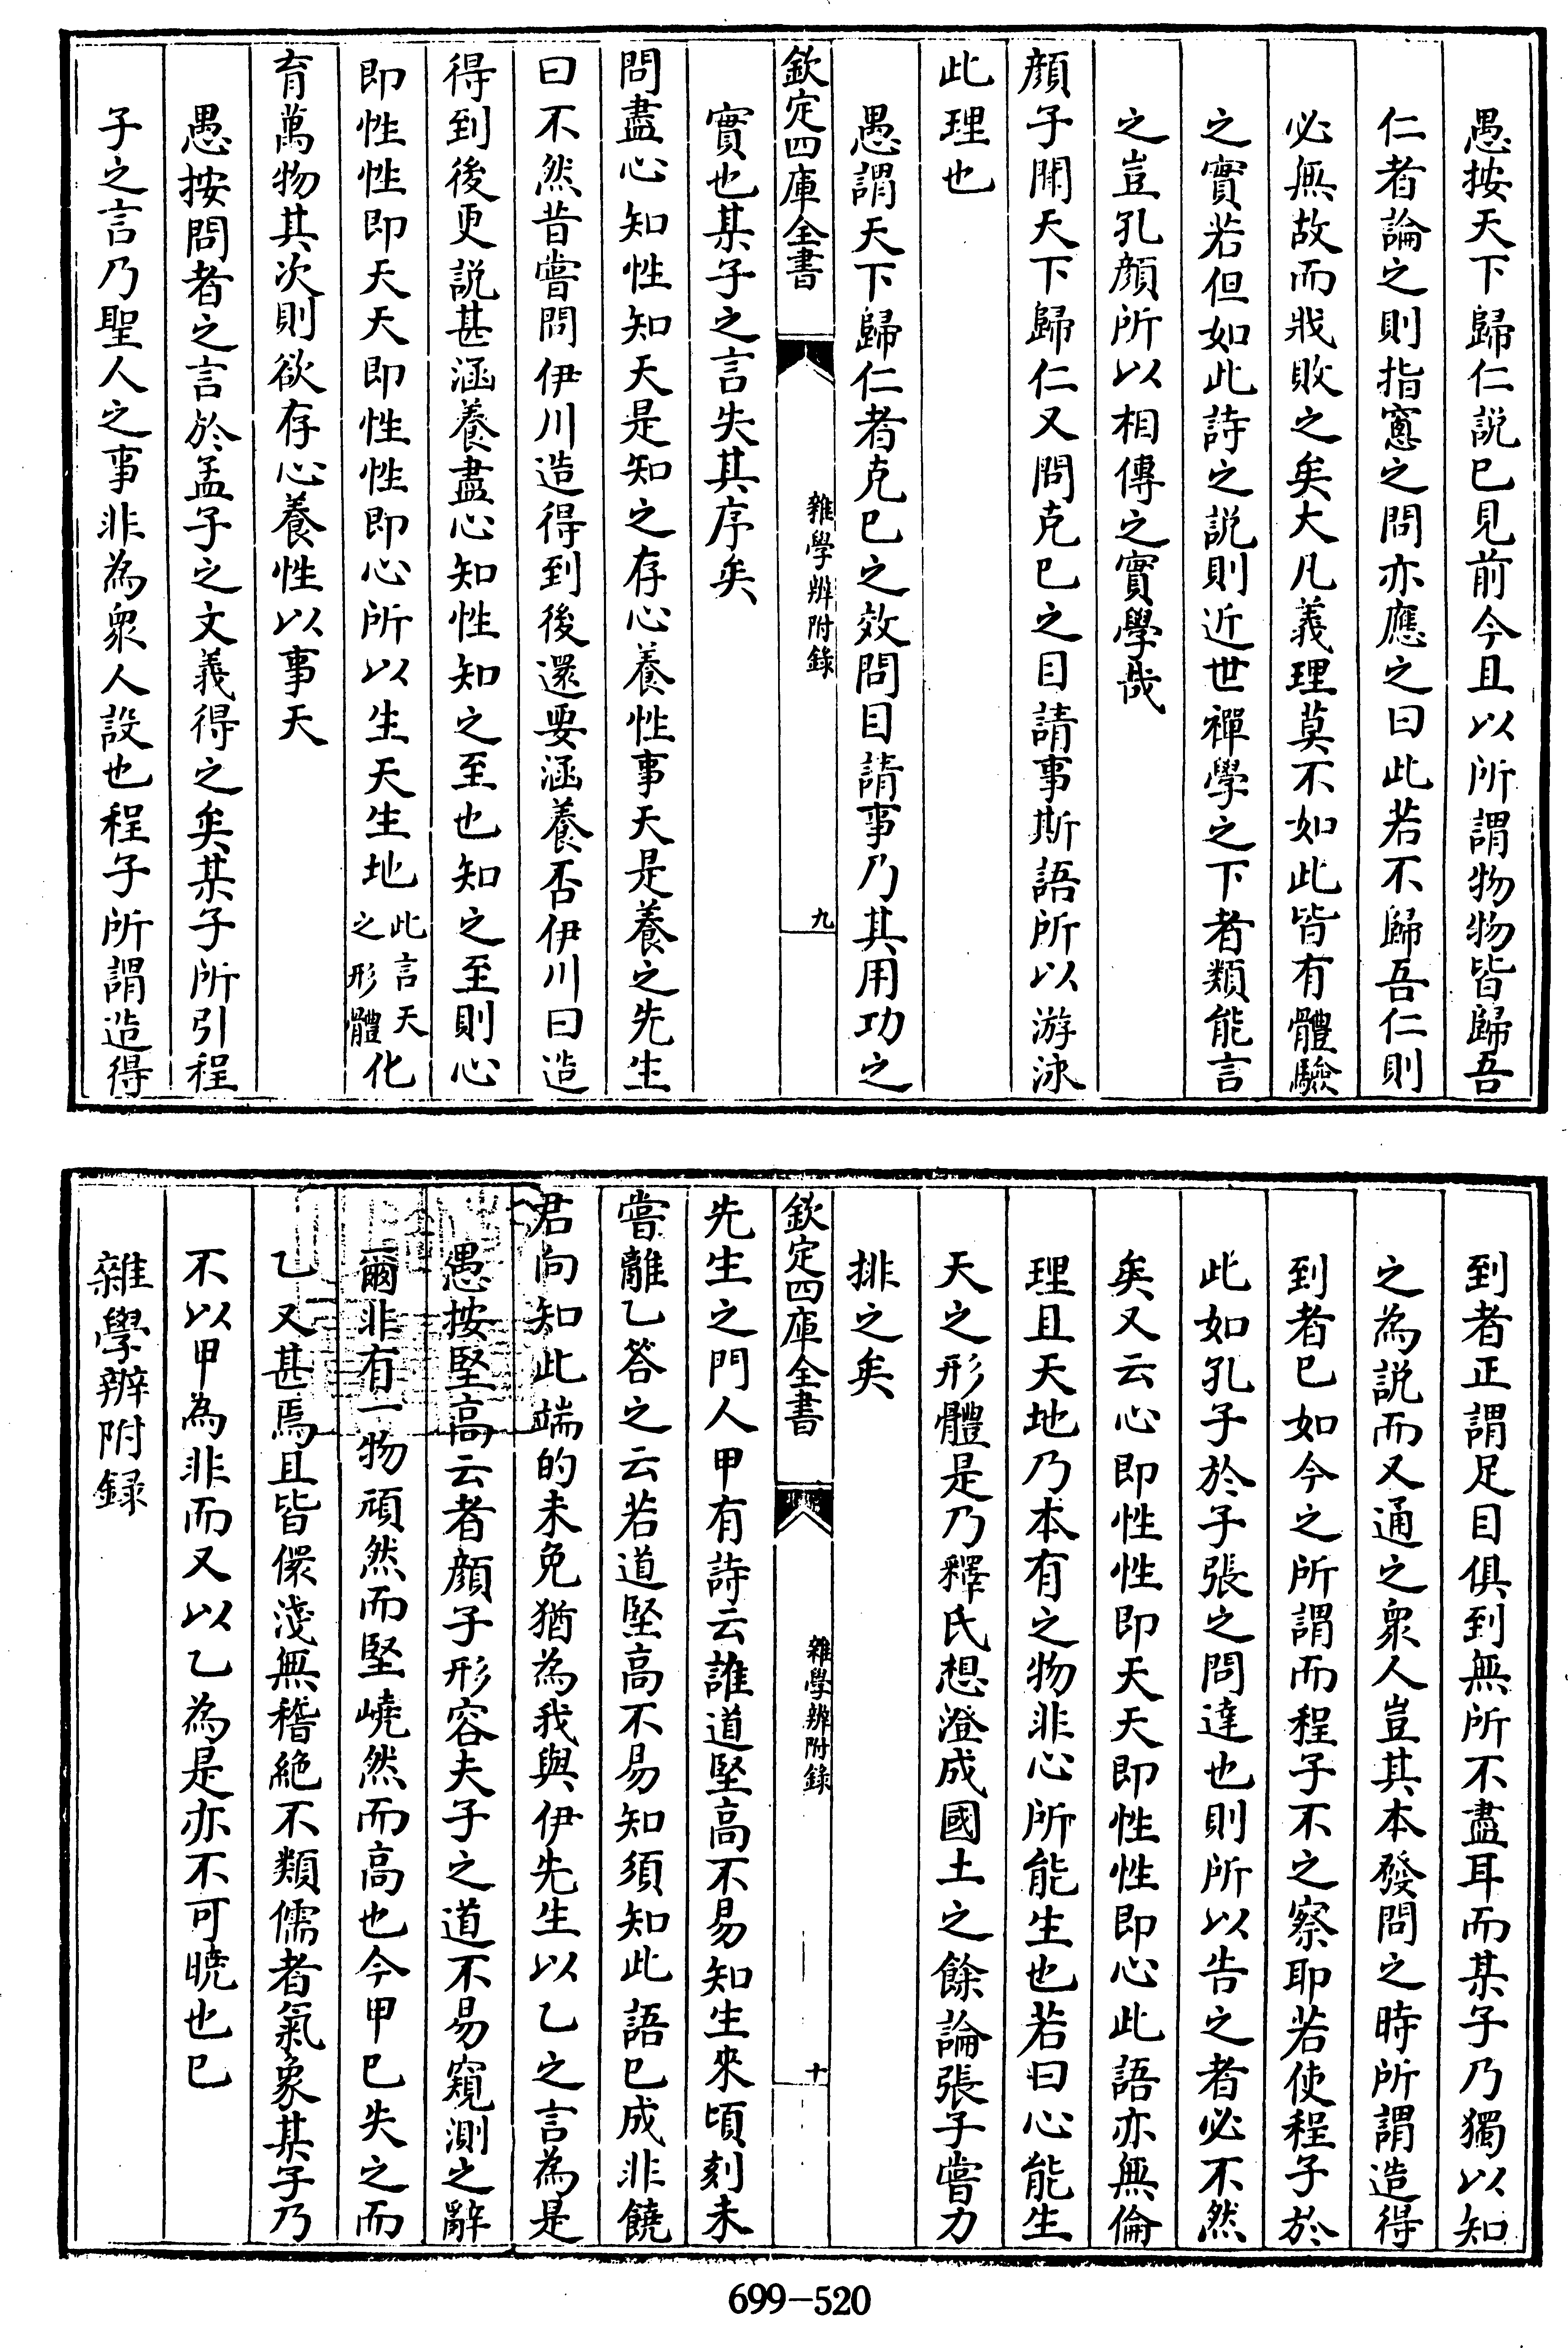 愚按天下歸仁説已見前今且以所謂物物皆歸吾
仁者論之則指窻之問亦應之曰此若不歸吾仁則
必無故而戕敗之矣大凡義理莫不如此皆有體驗
之實若但如此詩之説則近世禪學之下者類能言
之豈孔顔所以相傳之實學哉
顔子聞天下歸仁又問克己之目請事斯語所以游泳
此理也
愚謂天下歸仁者克己之效問目請事乃其用功之
欽定四庫全書
雜學辨附録
九
實也某子之言失其序矣
問盡心知性知天是知之存心養性事天是養之先生
曰不然昔嘗問伊川造得到後還要涵養否伊川曰造
得到後更説甚涵養盡心知性知之至也知之至則心
即性性即天天即性性即心所以生天生地此言天之形體化
育萬物其次則欲存心養性以事天
愚按問者之言於孟子之文義得之矣某子所引程
子之言乃聖人之事非為衆人設也程子所謂造得
到者正謂足目俱到無所不盡耳而某子乃獨以知
之為説而又通之衆人豈其本發問之時所謂造得
到者已如今之所謂而程子不之察耶若使程子於
此如孔子於子張之問達也則所以告之者必不然
矣又云心即性性即天天即性性即心此語亦無倫
理且天地乃本有之物非心所能生也若曰心能生
天之形體是乃釋氏想澄成國土之餘論張子嘗力
排之矣
欽定四庫全書
雜學辨附録
十
先生之門人甲有詩云誰道堅高不易知生來頃刻未
嘗離乙答之云若道堅高不易知須知此語已成非饒
君向知此端的未免猶為我與伊先生以乙之言為是
愚按堅高云者顔子形容夫子之道不易窺測之辭
爾非有一物頑然而堅嶢然而高也今甲已失之而
乙又甚焉且皆儇淺無稽絶不類儒者氣象某子乃
不以甲為非而又以乙為是亦不可曉也已
雜學辨附録
699-520